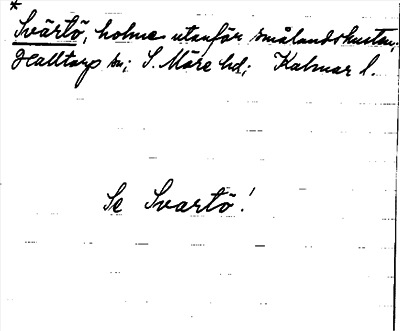 *
Svärtö, holme utanför smålandskusten,
Halltorp sn; S. Möre hd; Kalmar l.
Se Svartö!